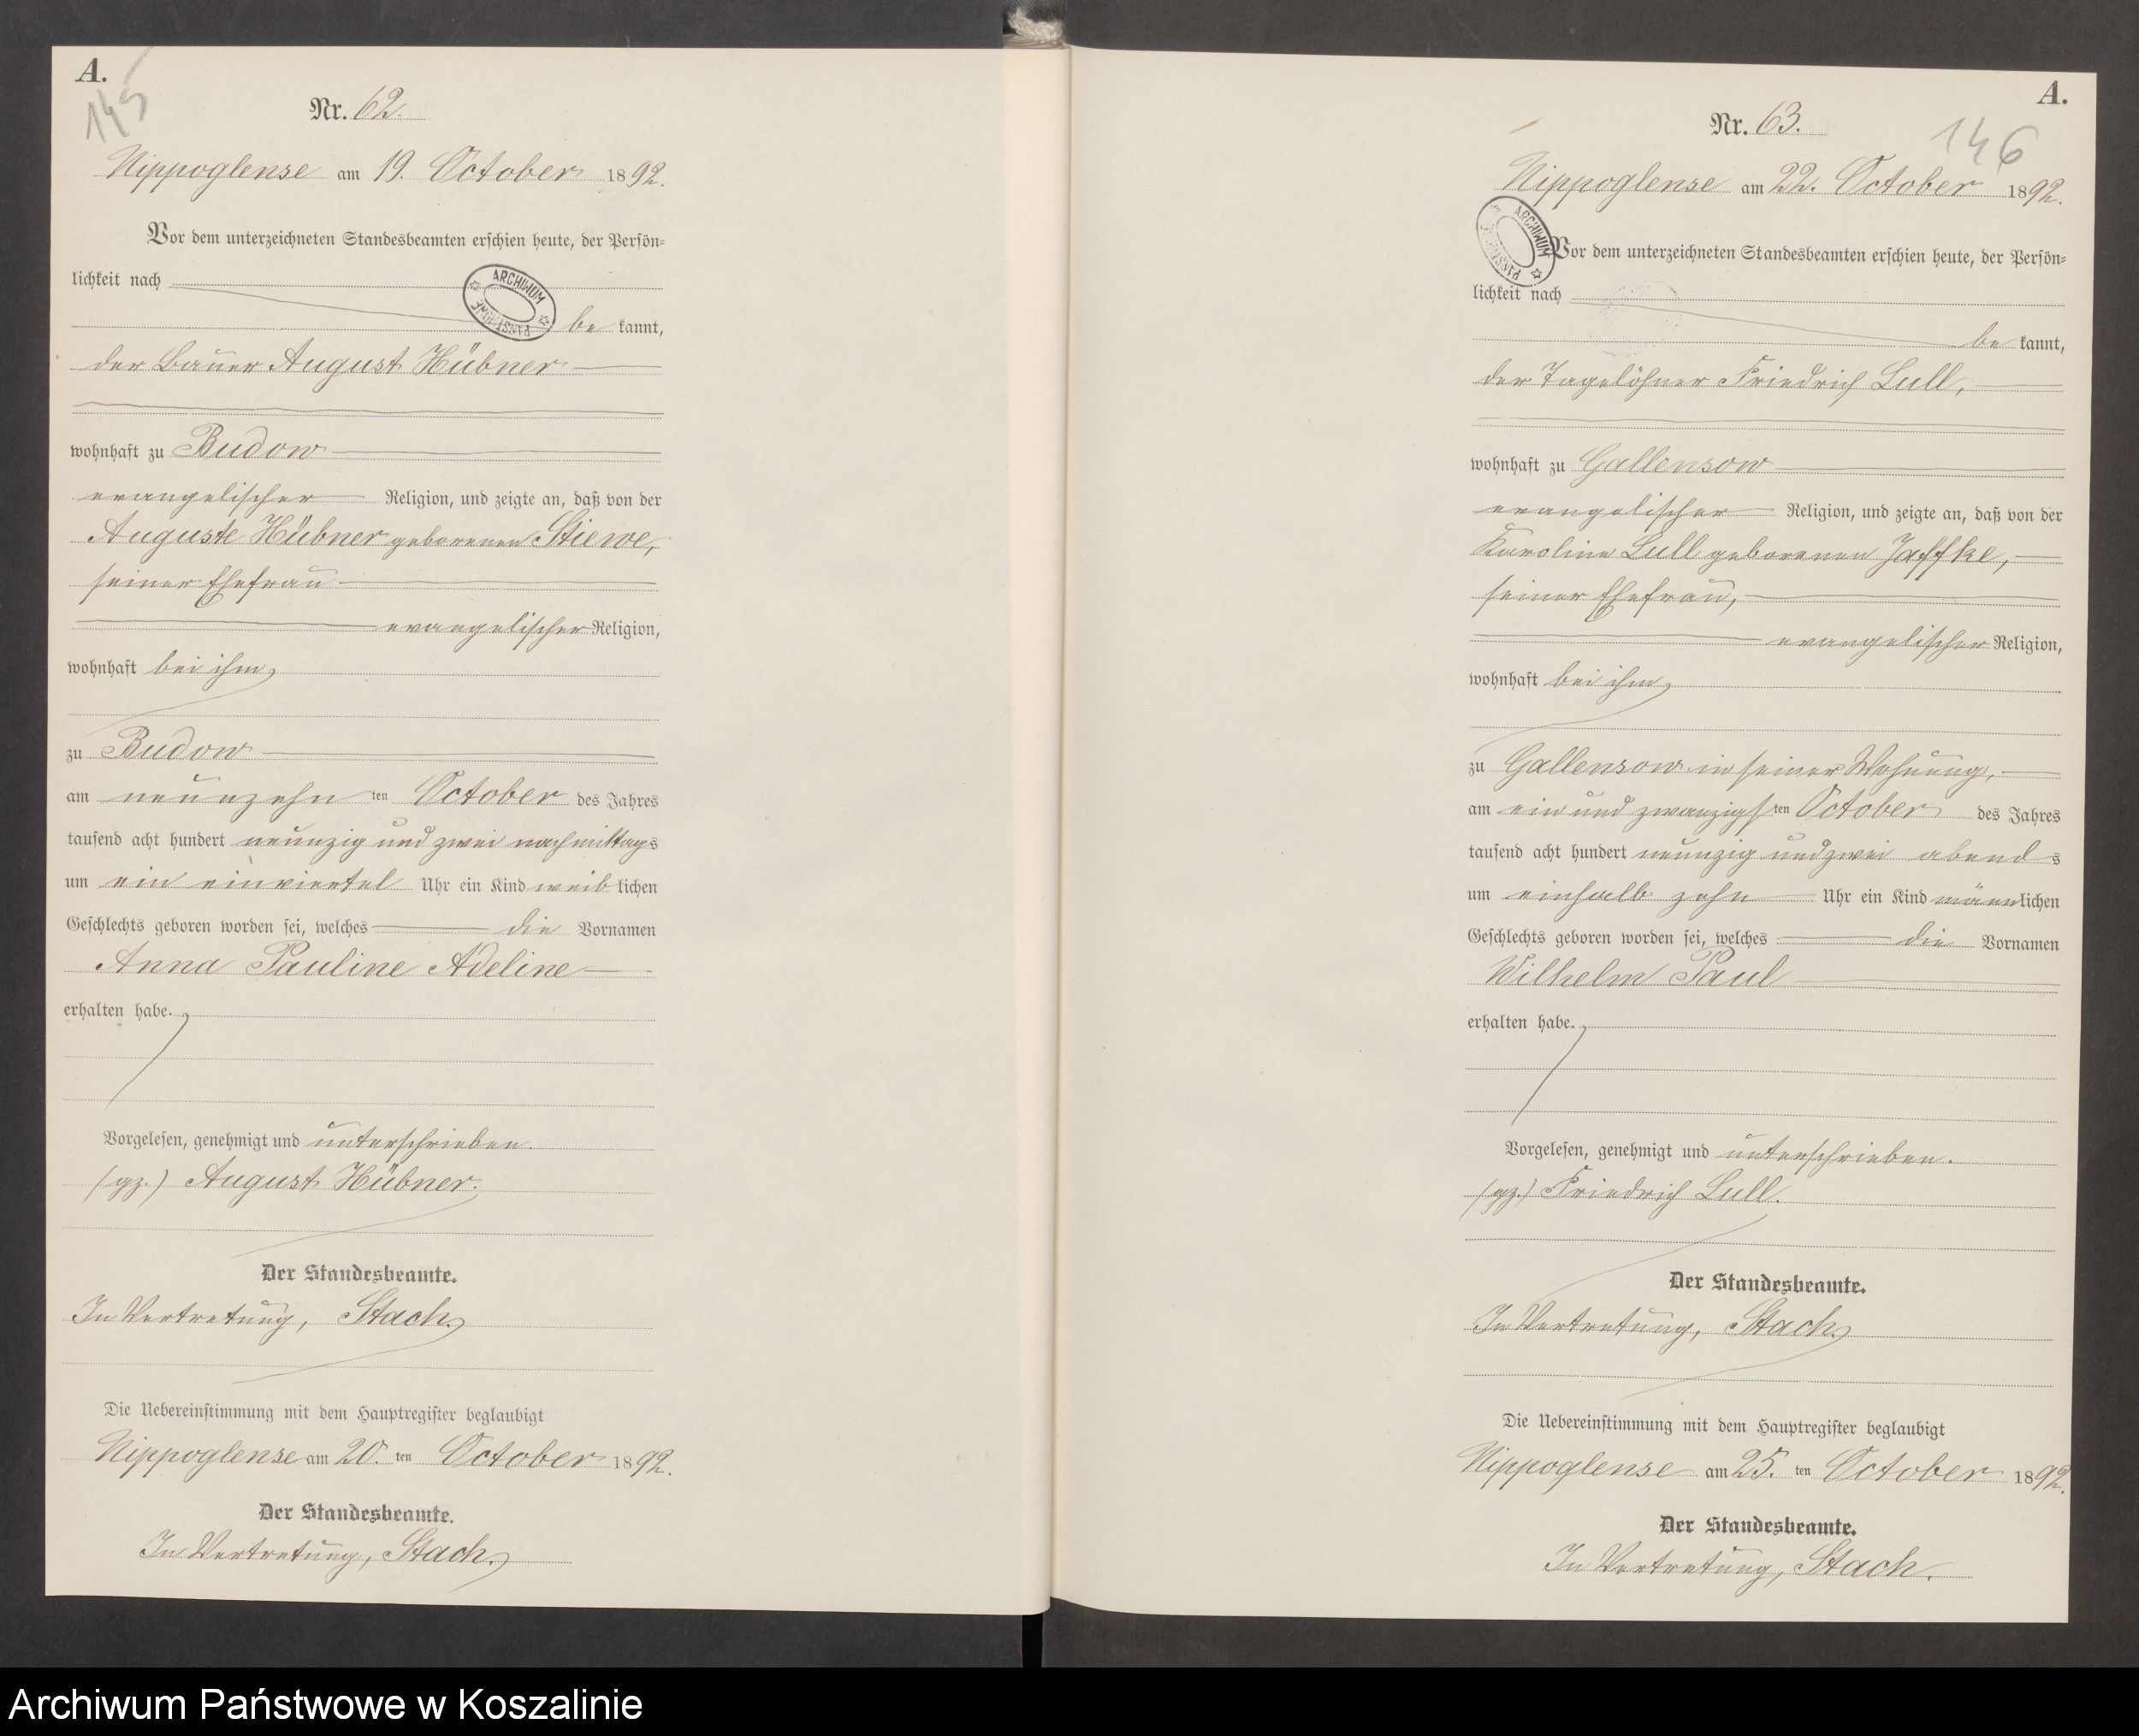 A.
145
Nr. 62.
Nippoglense am 19. October 1892.
Vor dem unterzeichneten Standesbeamten erschien heute, der Persön=
lichkeit nach
ARCHIWUM
be kannt,
der Bauer August Hübner
wohnhaft zu Budow
evangelischer Religion, und zeigte an, daß von der
Auguste Hübner geborenen Stiewe,
seiner Ehefrau
evangelischer Religion,
wohnhaft bei ihm,
zu Budow
am neunzehn ten October des Jahres
tausend acht hundert neunzig und zwei nachmittags
um ein einviertel Uhr ein Kind weib lichen
Geschlechts geboren worden sei, welches die Vornamen
Anna Pauline Adeline
erhalten habe.
Vorgelesen, genehmigt und unterschrieben.
(gz.) August Hübner.
Der Standesbeamte.
In Vertretung, Stach.
Die Uebereinstimmung mit dem Hauptregister beglaubigt
Nippoglense am 20. ten October 1892.
Der Standesbeamte.
In Vertretung, Stach.
A.
146
Nr. 63.
Nippoglense am 22. October 1892.
ARCHIWUM
Vor dem unterzeichneten Standesbeamten erschien heute, der Persön=
lichkeit nach
be kannt,
der Tagelöhner Friedrich Lull,
wohnhaft zu Gallensow
evangelischer Religion, und zeigte an, daß von der
Karoline Lull geborenen Jaffke,
seiner Ehefrau,
evangelischer Religion,
wohnhaft bei ihm,
zu Gallensow in seiner Wohnung,
am ein und zwanzigs ten October des Jahres
tausend acht hundert neunzig und zwei abends
um einhalb zehn Uhr ein Kind männlichen
Geschlechts geboren worden sei, welches die Vornamen
Wilhelm Paul
erhalten habe.
Vorgelesen, genehmigt und unterschrieben.
(gz.) Friedrich Lull.
Der Standesbeamte.
In Vertretung, Stach.
Die Uebereinstimmung mit dem Hauptregister beglaubigt
Nippoglense am 25. ten October 1892.
Der Standesbeamte.
In Vertretung, Stach.
Archiwum Państwowe w Koszalinie